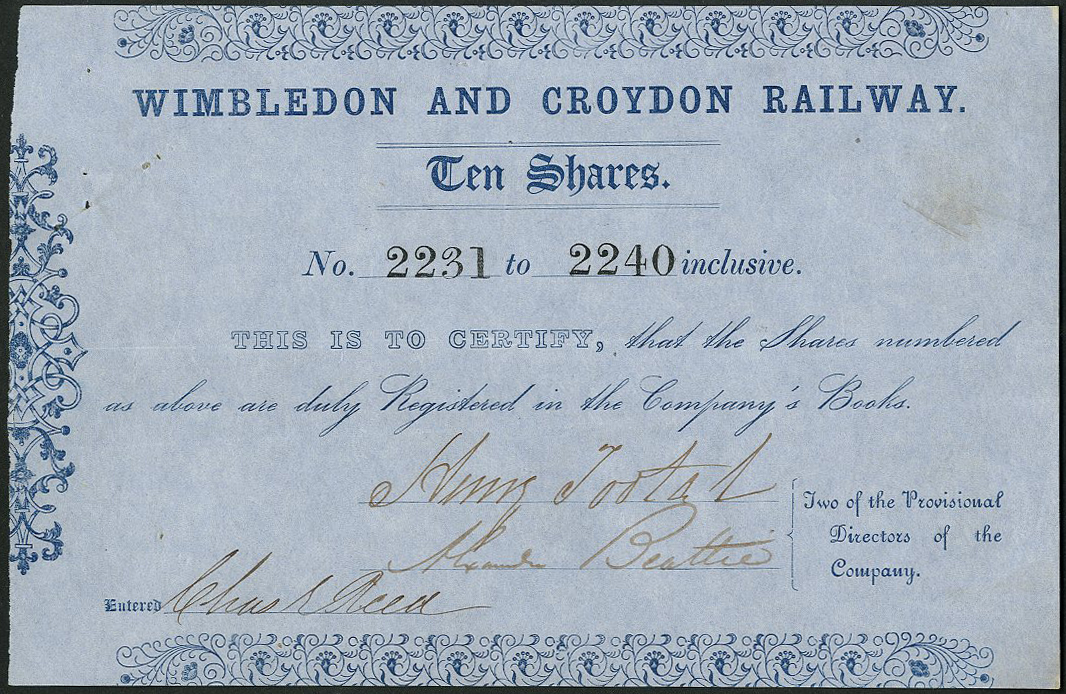 WIMBLEDON AND CROYDON RAILWAY.
Ten Shares.
No. 2231 to 2240 inclusive.
THIS IS TO CERTIFY, that the Shares numbered
as above are duly Registered in the Company's Books.
Henry Tootal
Alexander Beattie
Two of the Provisional
Directors of the
Company.
Entered Chas Reed